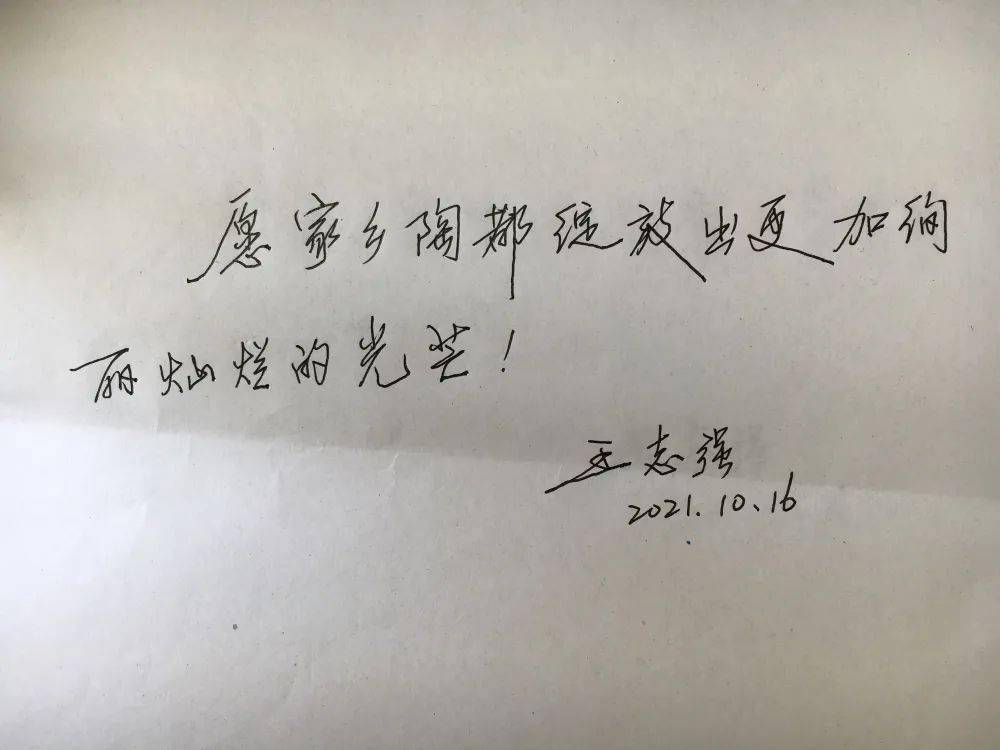 愿家乡陶都绽放出更加绚
丽灿烂的光芒！
王志强
2021.10.16